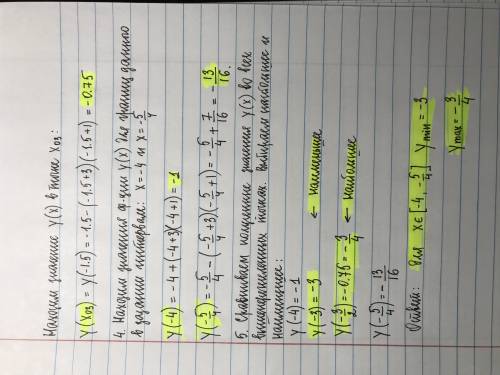 Находим значение y(x) в точке x₀₃:
y(x₀₃) = y(-1.5) = -1.5 - (-1.5+3)(-1.5+1) = -0.75
4. Находим значения ф-ции y(x) для границ данного
в задании интервала: x = -4 и x = -5/4
y(-4) = -4 + (-4+3)(-4+1) = -1
y(-5/4) = -5/4 - (-5/4+3)(-5/4+1) = -5/4 + 7/16 = -13/16.
5. Сравниваем полученные значения y(x) во всех
вышеописанных точках. Выбираем наибольшее и
наименьшее:
y(-4) = -1
y(-3) = -3 ← наименьшее
y(-3/2) = -0.75 = -3/4 ← наибольшее
y(-5/4) = -13/16
Ответ: для x∈[-4, -5/4] y min = -3
y max = -3/4